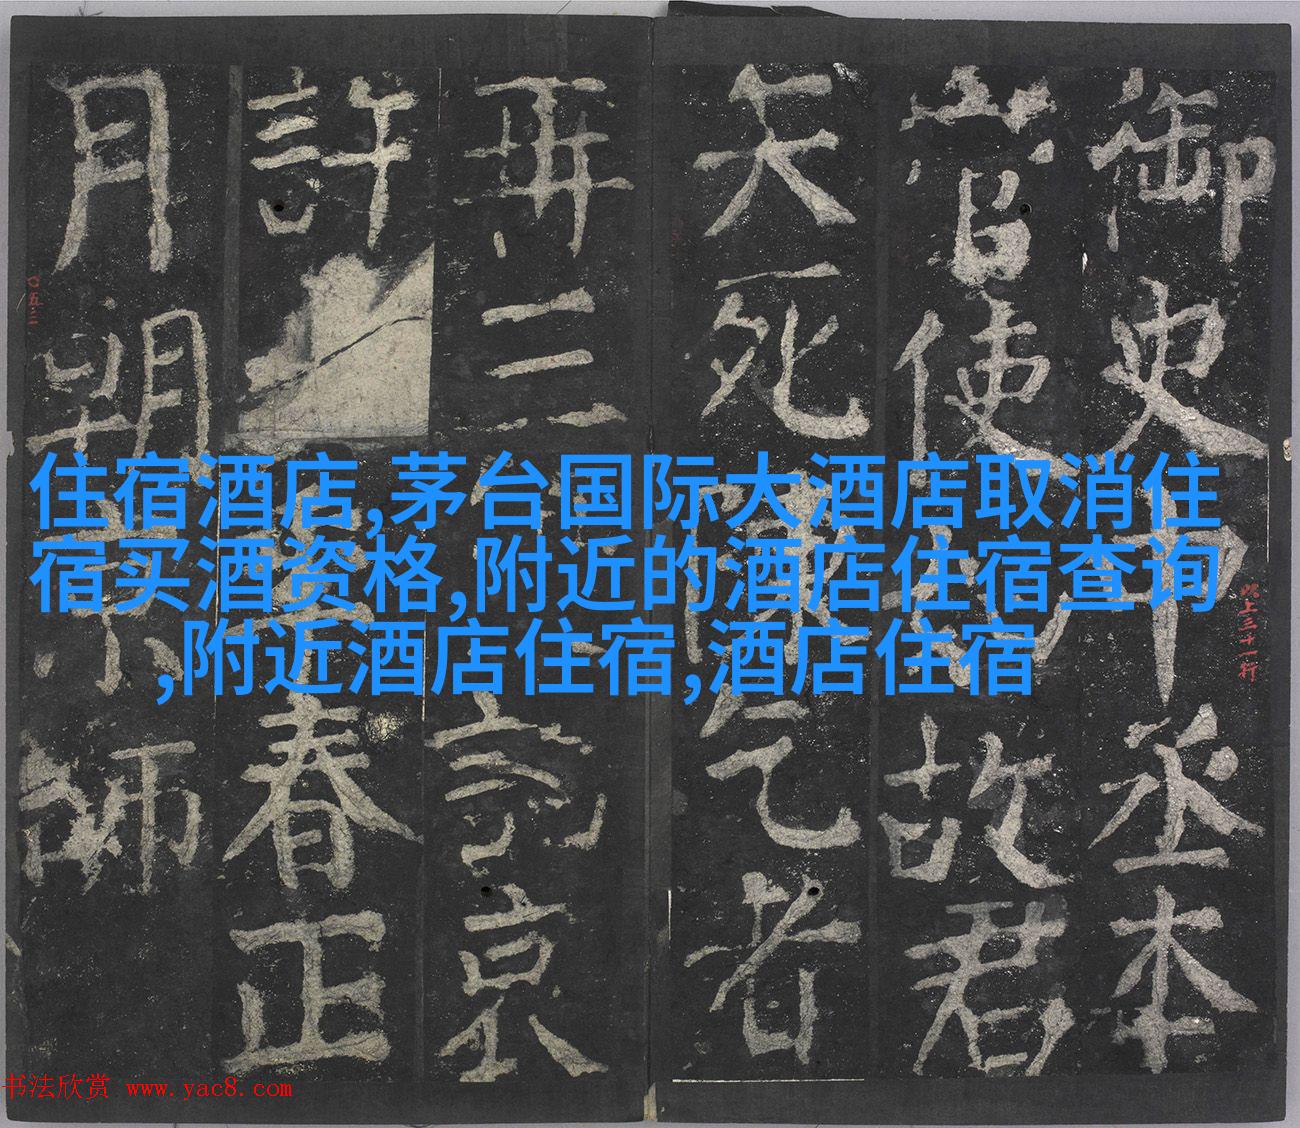 住宿酒店,茅台国际大酒店取消住
宿买酒资格,附近的酒店住宿查询
,附近酒店住宿,酒店住宿
御史中丞本
官使
故君
矢死
乞者
再三
京
許
春正
月朔
師
〇五三
此上三十一行
书法欣赏 www.yac8.com